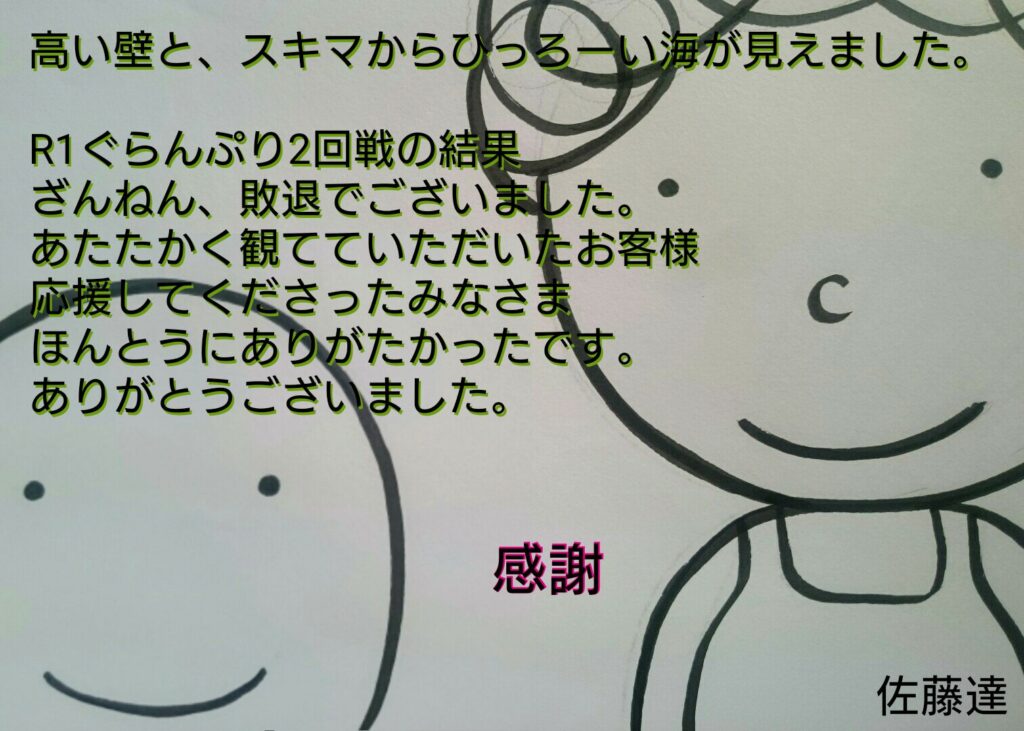 高い壁と、スキマからひっろーい海が見えました。
R1ぐらんぷり2回戦の結果
ざんねん、敗退でございました。
あたたかく観てていただいたお客様
応援してくださったみなさま
ほんとうにありがたかったです。
ありがとうございました。
感謝
佐藤達